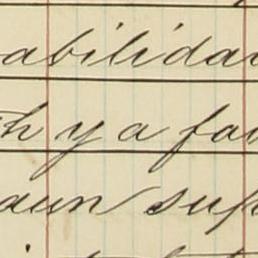 abilida
h y a fa
aun sup